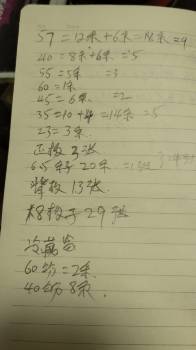 57=12米+6米=18米=9
40=8米+6米=5
55=5米 =3
60=1米
45=6米 =2
35=10+4=14米=5
23=3米
正板 3张
65 20米
背板 13张
29张
冷藏
60的=2米
40的8米